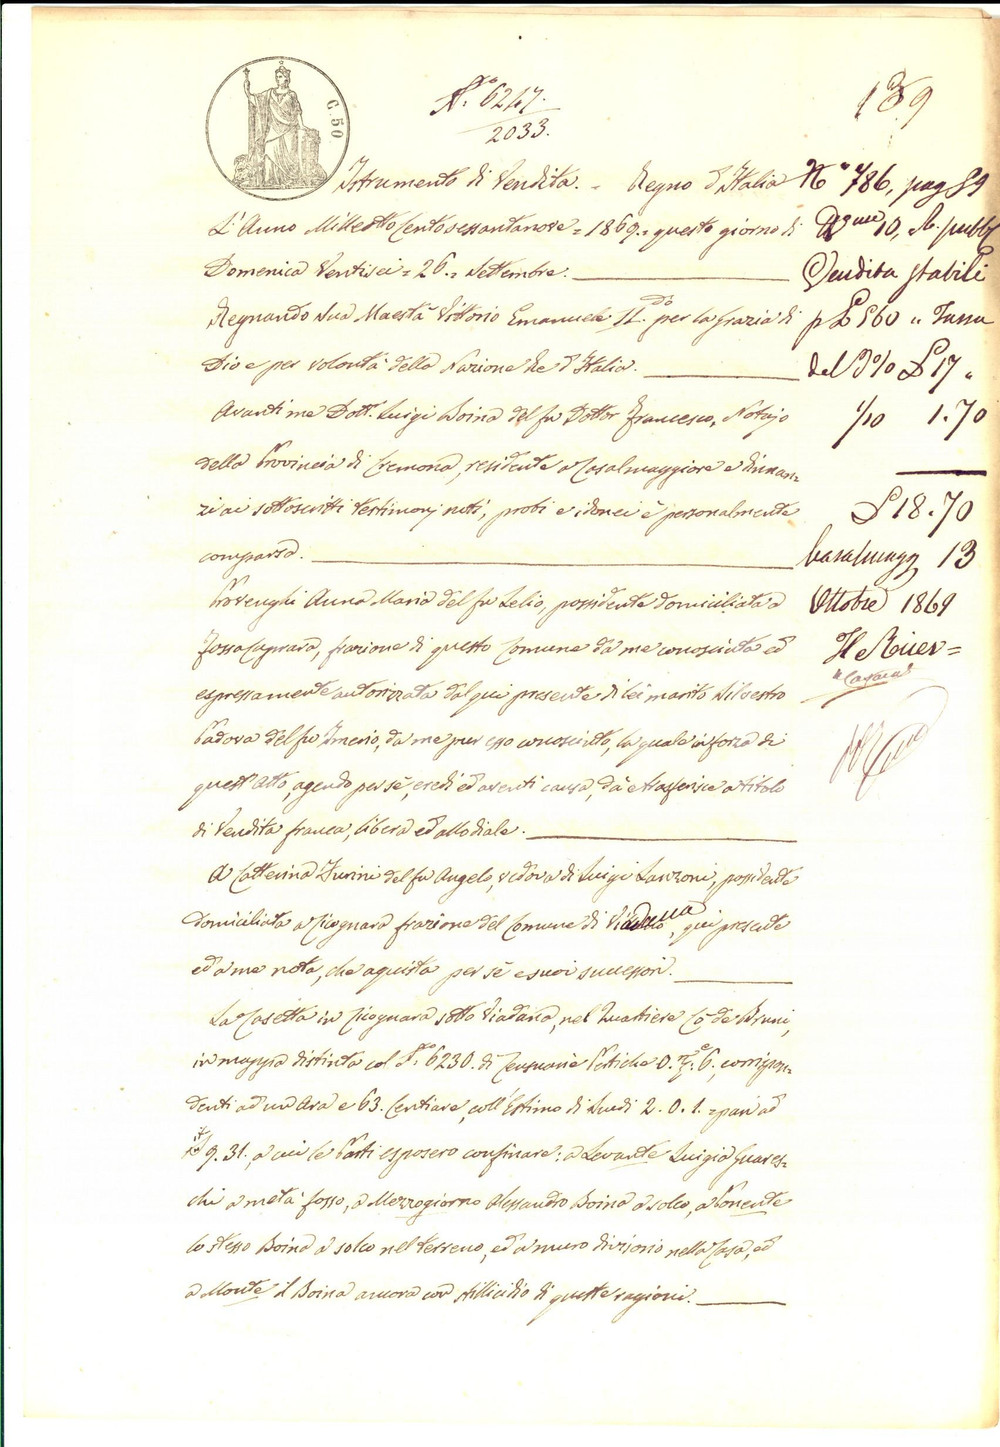 C. 50
N.° 6247.
2033.
139
Istrumento di Vendita. - Regno d'Italia
L'Anno Mille otto Cento sessantanove = 1869. = questo giorno di
Domenica Ventisei = 26. = Settembre.
Regnando Sua Maestà Vittorio Emanuele II.do per la grazia di
Dio e per volontà della Nazione Re d'Italia.
Avanti me Dott. Luigi Boina del fu Dottor Francesco, Notajo
della Provincia di Cremona, residente a Casalmaggiore e dinnan=
zi ai sottoscritti testimonj noti, probi e idonei è personalmente
comparsa.
Provenghi Anna Maria del fu Lelio, possidente domiciliata a
Fossacaprara, frazione di questo Comune da me conosciuta ed
espressamente autorizzata dal qui presente di lei marito Silvestro
Padova del fu Imerio, da me pur esso conosciuto, la quale in forza di
quest'Atto, agendo per sé, eredi ed aventi causa, dà e trasferisce a titolo
di Vendita franca, libera ed allodiale.
A Catterina Furini del fu Angelo, vedova di Luigi Lanzoni, possidente
domiciliata a Cicognara frazione del Comune di Viadana, qui presente
ed a me nota, che aquista per sé e suoi successori.
La Casetta in Cicognara sotto Viadana, nel Quartiere Cà de Bruni,
in mappa distinta col N.° 6230. di Censuarie Pertiche 0. 6., corrispon=
denti ad un Ara e 63. Centiare, coll'Estimo di Scudi 2. 0. 1. = pari ad
9. 31., a cui le Parti esposero confinare: a Levante Luigia Guares=
chi a metà fosso, a Mezzogiorno Alessandro Boina a solco, a Ponente
lo stesso Boina a solco nel terreno, ed a muro divisorio nella Casa, ed
a Monte il Boina ancora con stillicidio di queste ragioni.
N° 786, pag 89
10, A. pubbi
Vendita stabili
p £ 560 " Tassa
del 3% £ 17 "
1/10 1.70
£ 18.70
13
Ottobre 1869
Il Ricev=